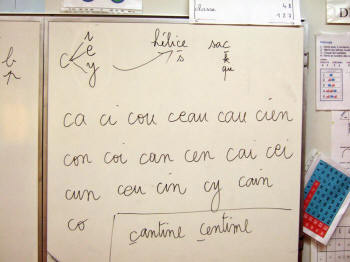 classe
i
e
c y
hélice sac
s k
qu
ca ci cou ceau cau cien
con coi can cen cai cei
cun ceu cin cy cain
co cantine centime